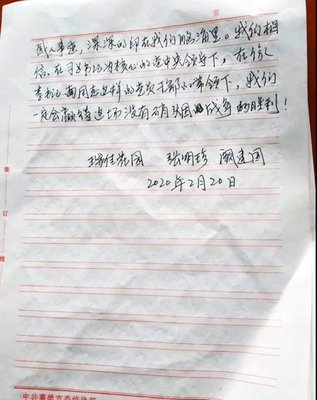 感人事迹,深深的印在我们脑海里。我们相
信,在习书记为核心的党中央领导下,在像
李书记、同志这样的党员干部的带领下,我们
一定会赢得这场没有硝烟战争的胜利!
瑞佳花园 张明珍 阚建国
2020年2月20日
中共